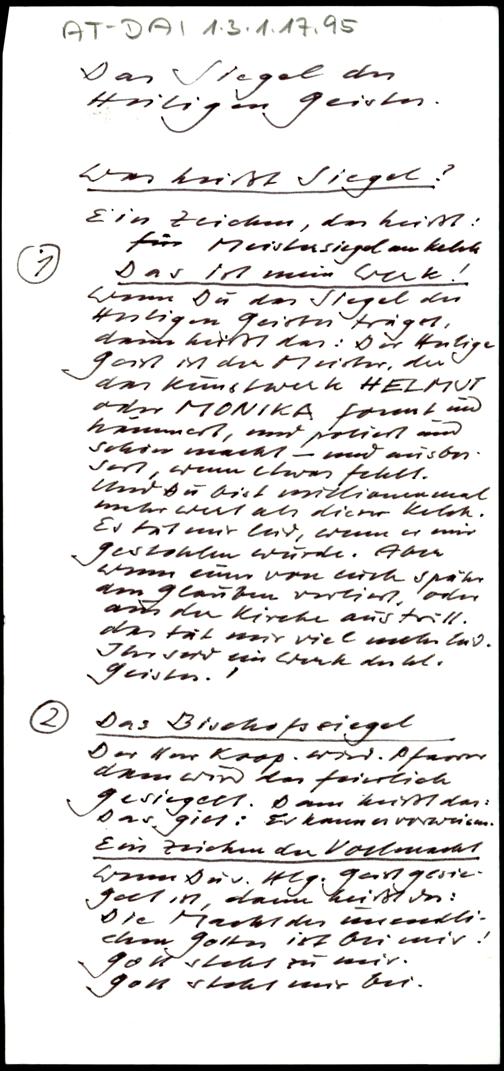 AT-DAI 1.3.1.17.95
Das Siegel des
Heiligen Geistes.
Was heißt Siegel?
Ein Zeichen, das heißt:
für Meistersiegel am Kelch
1 Das ist mein Werk!
Wenn Du das Siegel des
Heiligen Geistes trägst,
dann heißt das: Der Heilige
Geist ist der Meister, der
das Kunstwerk HELMUT
oder MONIKA formt und
hämmert, und poliert und
schön macht – und ausbes-
sert, wenn etwas fehlt.
Und Du bist millionenmal
mehr wert als dieser Kelch.
Es tät mir leid, wenn er mir
gestohlen würde. Aber
wenn einer von euch später
den Glauben verliert, oder
aus der Kirche austritt.
das tät mir viel mehr leid.
Ihr seid ein Werk des hl.
Geistes.!
2 Das Bischofssiegel
Der Herr Koop. wird Pfarrer
dann wird das feierlich
gesiegelt. Dann heißt das:
Das gilt: Er kann es vorweisen.
Ein Zeichen der Vollmacht
Wenn Du v. Hlg. Geist gesie-
gelt ist, dann heißt das:
Die Macht des unendli-
chen Gottes ist bei mir!
Gott steht zu mir.
Gott steht mir bei.